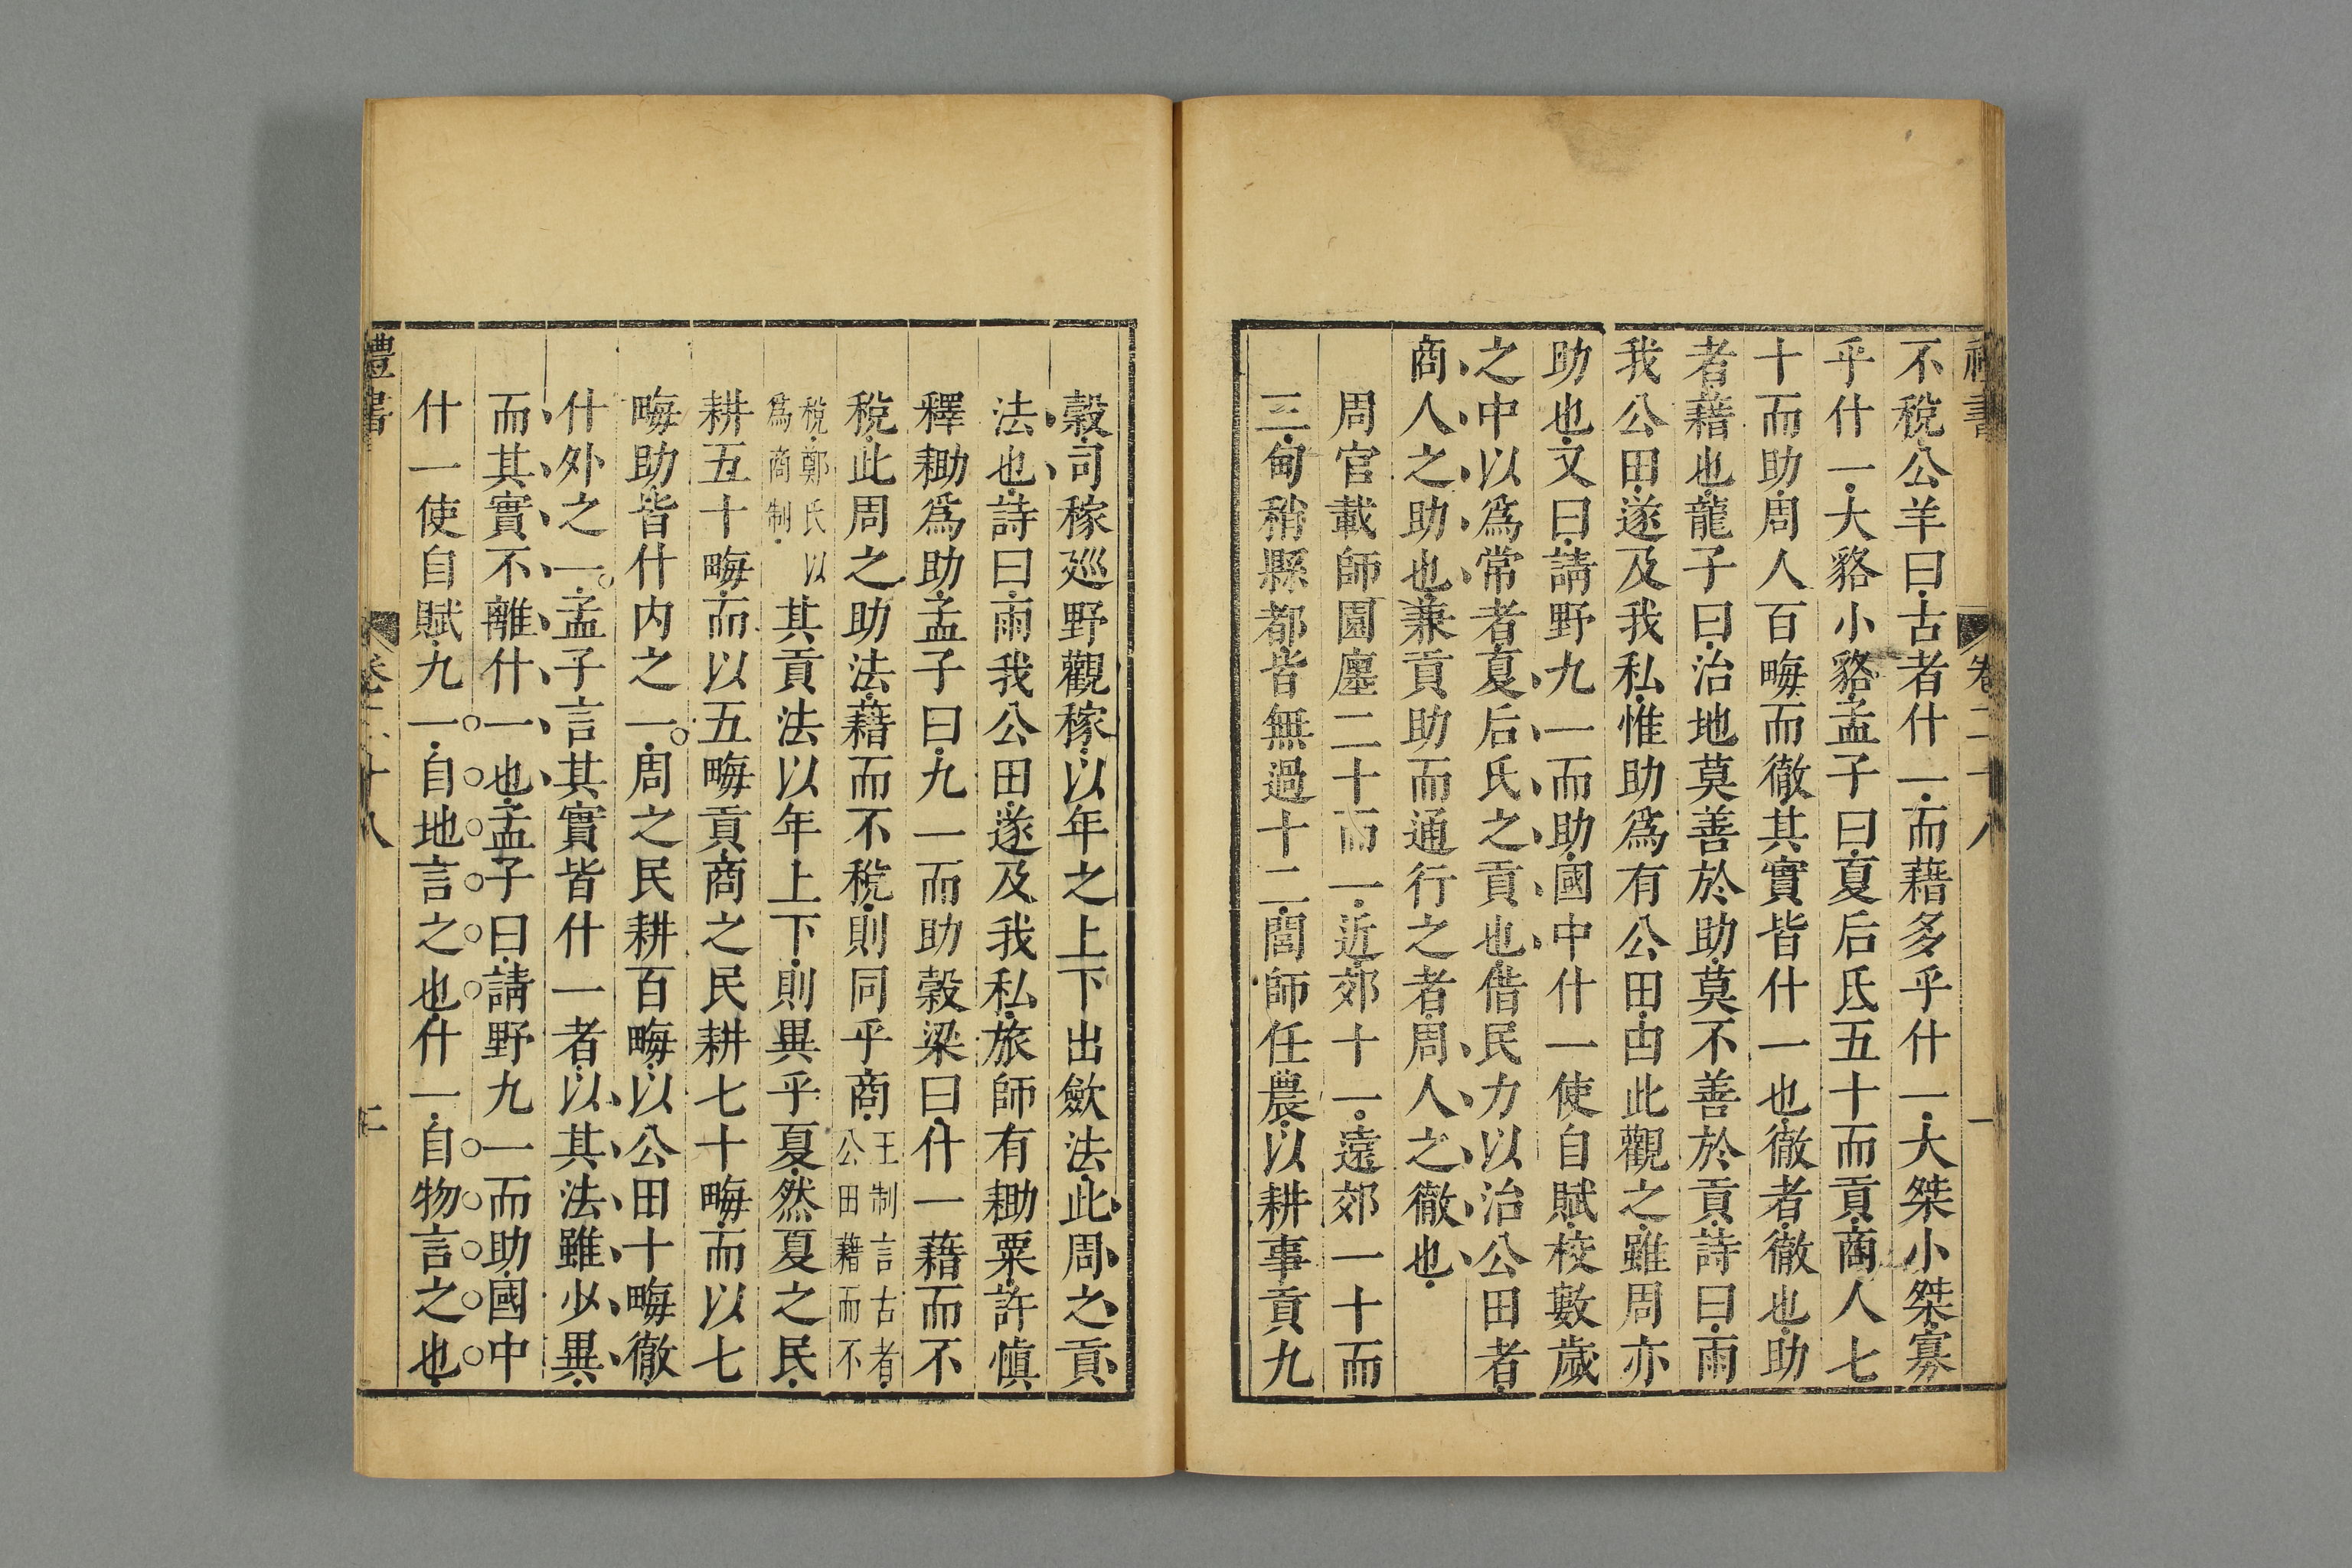 禮書 卷二十八 一
不稅公羊曰古者什一而藉多乎什一大桀小桀寡
乎什一大貉小貉孟子曰夏后氏五十而貢商人七
十而助周人百畮而徹其實皆什一也徹者徹也助
者藉也龍子曰治地莫善於助莫不善於貢詩曰雨
我公田遂及我私惟助爲有公田由此觀之雖周亦
助也又曰請野九一而助國中什一使自賦校數歲
之中以爲常者夏后氏之貢也借民力以治公田者
商人之助也兼貢助而通行之者周人之徹也
周官載師園廛二十而一近郊十一遠郊二十而
三甸稍縣都皆無過十二閭師任農以耕事貢九
穀司稼廵野觀稼以年之上下出斂法此周之貢
法也詩曰雨我公田遂及我私旅師有耡粟許愼
釋耡爲助孟子曰九一而助穀梁曰什一藉而不
稅此周之助法藉而不稅則同乎商王制言古者公田藉而不
稅鄭氏以爲商制其貢法以年上下則異乎夏然夏之民
耕五十畮而以五畮貢商之民耕七十畮而以七
畮助皆什内之一周之民耕百畮以公田十畮徹
什外之一孟子言其實皆什一者以其法雖少異
而其實不離什一也孟子曰請野九一而助國中
什一使自賦九一自地言之也什一自物言之也
禮書 卷二十八